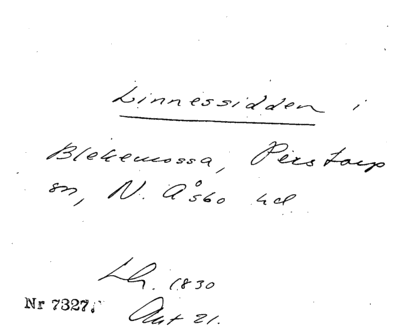 Linnessidden i
Blekemossa, Perstorp
sn, N. Åsbo hd
Lh. 1830
Ant 21.
Nr 7327.